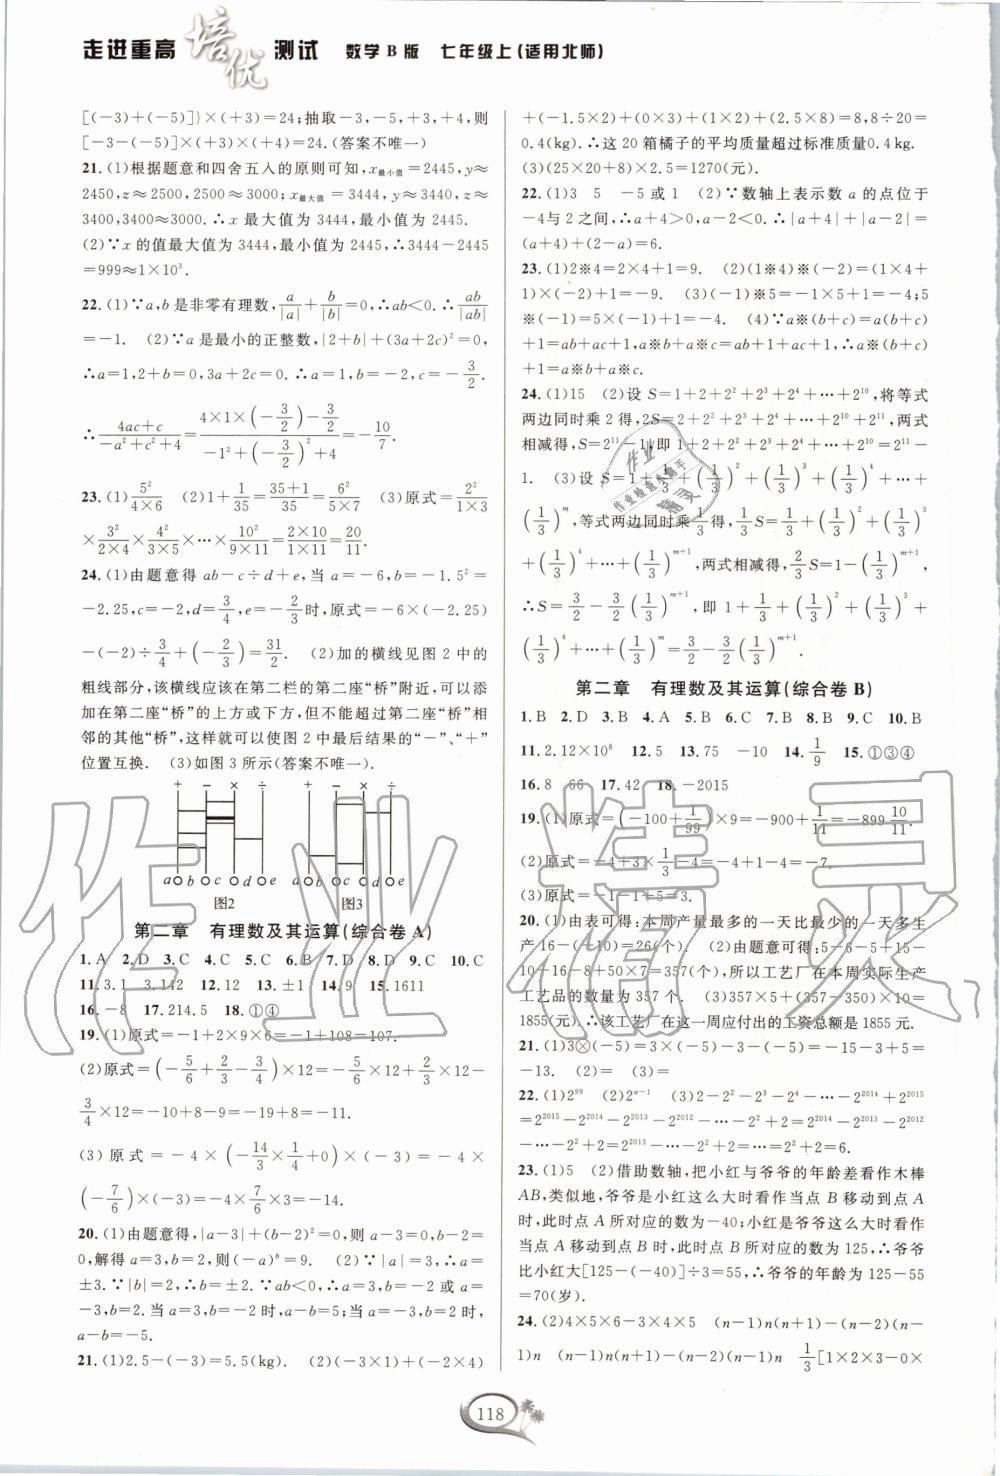 走进重高 培优 测试 数学B版 七年级上(适用北师)
[(-3)+(-5)]}×(+3)=24;抽取-3,-5,+3,+4,则
[-3-(-5)]×(+3)×(+4)=24.(答案不唯一)
21.(1)根据题意和四舍五入的原则可知,x最小值=2445,y≈
2450,z≈2500,2500≈3000;x最大值=3444,y≈3440,z≈
3400,3400≈3000.∴x最大值为3444,最小值为2445.
(2)∵x的值最大值为3444,最小值为2445,∴3444-2445
=999≈1×10³.
22.(1)∵a,b是非零有理数,a/|a|+b/|b|=0,∴ab<0.∴ab/|ab|
=-1. (2)∵a是最小的正整数,|2+b|+(3a+2c)²=0,
∴a=1,2+b=0,3a+2c=0.∴a=1,b=-2,c=-3/2.
∴(4ac+c)/(-a²+c²+4)=(4×1×(-3/2)-3/2)/(-1²+(-3/2)²+4)=-10/7.
23.(1)5²/(4×6) (2)1+1/35=(35+1)/35=6²/(5×7) (3)原式=2²/(1×3)
×3²/(2×4)×4²/(3×5)×…×10²/(9×11)=(2×10)/(1×11)=20/11.
24.(1)由题意得ab-c÷d+e,当a=-6,b=-1.5²=
-2.25,c=-2,d=3/4,e=-2/3时,原式=-6×(-2.25)
-(-2)÷3/4+(-2/3)=31/2. (2)加的横线见图2中的
粗线部分,该横线应该在第二栏的第二座“桥”附近,可以添
加在第二座“桥”的上方或下方,但不能超过第二座“桥”相
邻的其他“桥”,这样就可以使图2中最后结果的“-”、“+”
位置互换. (3)如图3所示(答案不唯一).
+ - × ÷ + - × ÷
a b c d e a b c d e
图2 图3
第二章 有理数及其运算(综合卷A)
1.A 2.D 3.C 4.C 5.C 6.B 7.D 8.D 9.C 10.C
11.3.1 3.142 12.12 13.±1 14.9 15.1611
16.-8 17.214.5 18.①④
19.(1)原式=-1+2×9×6=-1+108=107.
(2)原式=(-5/6+2/3-3/4)×12=-5/6×12+2/3×12-
3/4×12=-10+8+-9=-19+8=-11.
(3)原式=-4×(-14/3×1/4+1/3-1/3)×(-3)=-4×
(-7/6)×(-3)=-4×7/6×3=-14.
20.(1)由题意得,|a-3|+(b-2)²=0,则a-3=0,b-2=
0,解得a=3,b=2,则(-a)ᵇ=9. (2)∵|a|=3,∴a=
±3.∵|b|=2,∴b=±2.∵ab<0,∴a=3,b=-2或a=
-3,b=2.当a=3,b=-2时,a-b=5;当a=-3,b=2时,
a-b=-5.
21.(1)2.5-(-3)=5.5(kg). (2)(-3×1)+(-2×4)
+(-1.5×2)+(0×3)+(1×2)+(2.5×8)=8,8÷20=
0.4(kg).∴这20箱橘子的平均质量超过标准质量0.4kg.
(3)(25×20+8)×2.5=1270(元).
22.(1)3 5 -5或1 (2)∵数轴上表示数a的点位于
-4与2之间,∴a+4>0,a-2<0.∴|a+4|+|a-2|=
(a+4)+(2-a)=6.
23.(1)2※4=2×4+1=9. (2)(1※4)※(-2)=(1×4+
1)×(-2)+1=-9. (3)(-1)※5=-1×5+1=-4;5
※(-1)=5×(-1)+1=-4. (4)∵a※(b+c)=a(b+c)
+1=ab+ac+1,a※b+a※c=ab+1+ac+1.∴a※(b+c)
+1=a※b+a※c.
24.(1)15 (2)设S=1+2+2²+2³+2⁴+…+2¹⁰,将等式
两边同时乘2得,2S=2+2²+2³+2⁴+…+2¹⁰+2¹¹,两式
相减得,S=2¹¹-1,即1+2+2²+2³+2⁴+…+2¹⁰=2¹¹-
1. (3)设S=1+1/3+(1/3)²+(1/3)³+(1/3)⁴+…+
(1/3)ᵐ,等式两边同时乘1/3得,1/3S=1/3+(1/3)²+(1/3)³
+(1/3)⁴+…+(1/3)ᵐ⁺¹,两式相减得,2/3S=1-(1/3)ᵐ⁺¹,
∴S=3/2-3/2(1/3)ᵐ⁺¹,即1+1/3+(1/3)²+(1/3)³+
(1/3)⁴+…+(1/3)ᵐ=3/2-3/2(1/3)ᵐ⁺¹.
第二章 有理数及其运算(综合卷B)
1.B 2.D 3.B 4.A 5.B 6.C 7.B 8.B 9.C 10.B
11.2.12×10⁸ 12.5 13.75 -10 14.1/9 15.①③④
16.8 66 17.42 18.-2015
19.(1)原式=(-100+1/99)×9=-900+1/11=-899 10/11.
(2)原式=-4+3×1/3-4=-4+1-4=-7.
(3)原式=-1-1+5=3.
20.(1)由表可得:本周产量最多的一天比最少的一天多生
产16-(-10)=26(个). (2)由题意可得:5-6-5+15-
10+16-8+50×7=357(个),所以工艺厂在本周实际生产
工艺品的数量为357个. (3)357×5+(357-350)×10=
1855(元).∴该工艺厂在这一周应付出的工资总额是1855元.
21.(1)3⊗(-5)=3×(-5)-(-5)-3=-15-3+5=
-13. (2)= (3)=
22.(1)2⁹⁹ (2)2ⁿ⁻¹ (3)2-2²-2³-2⁴-…-2²⁰¹⁴+2²⁰¹⁵
=2²⁰¹⁵-2²⁰¹⁴-2²⁰¹³-2²⁰¹²-…-2²+2=2²⁰¹⁴-2²⁰¹³-2²⁰¹²
-…-2²+2=2³-2²+2=2²+2=6.
23.(1)5 (2)借助数轴,把小红与爷爷的年龄差看作木棒
AB,类似地,爷爷是小红这么大时看作当点B移动到点A
时,此时点A所对应的数为-40;小红是爷爷这么大时看作
当点A移动到点B时,此时点B所对应的数为125,∴爷爷
比小红大[125-(-40)]÷3=55,∴爷爷的年龄为125-55
=70(岁).
24.(2)4×5×6-3×4×5 (n-1)n(n+1)-(n-2)(n-
1)n (n-1)n(n+1)-(n-2)(n-1)n 1/3[1×2×3-0×
118
作业精灵
作业
作业检查小助手
精灵